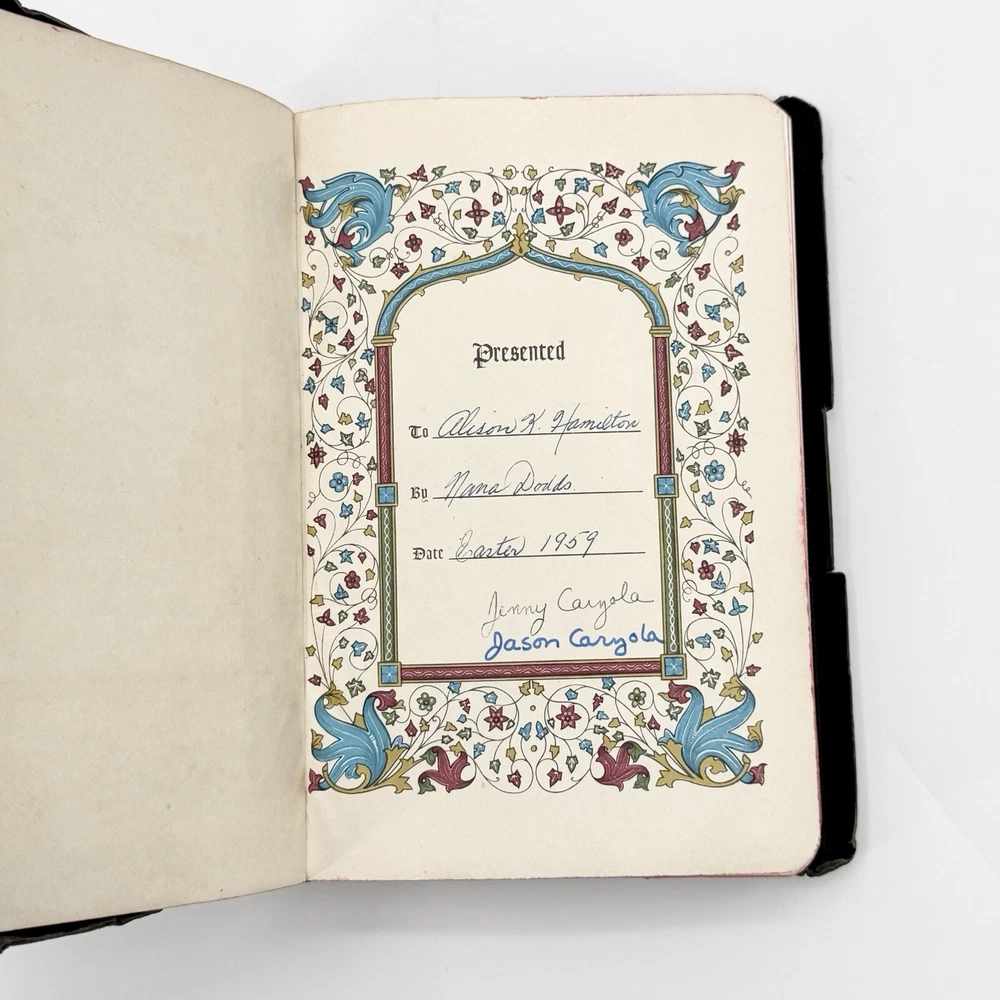 Presented
To Alison K. Hamilton
By Nana Dodds
Date Easter 1959
Jenny Caryola
Jason Caryola